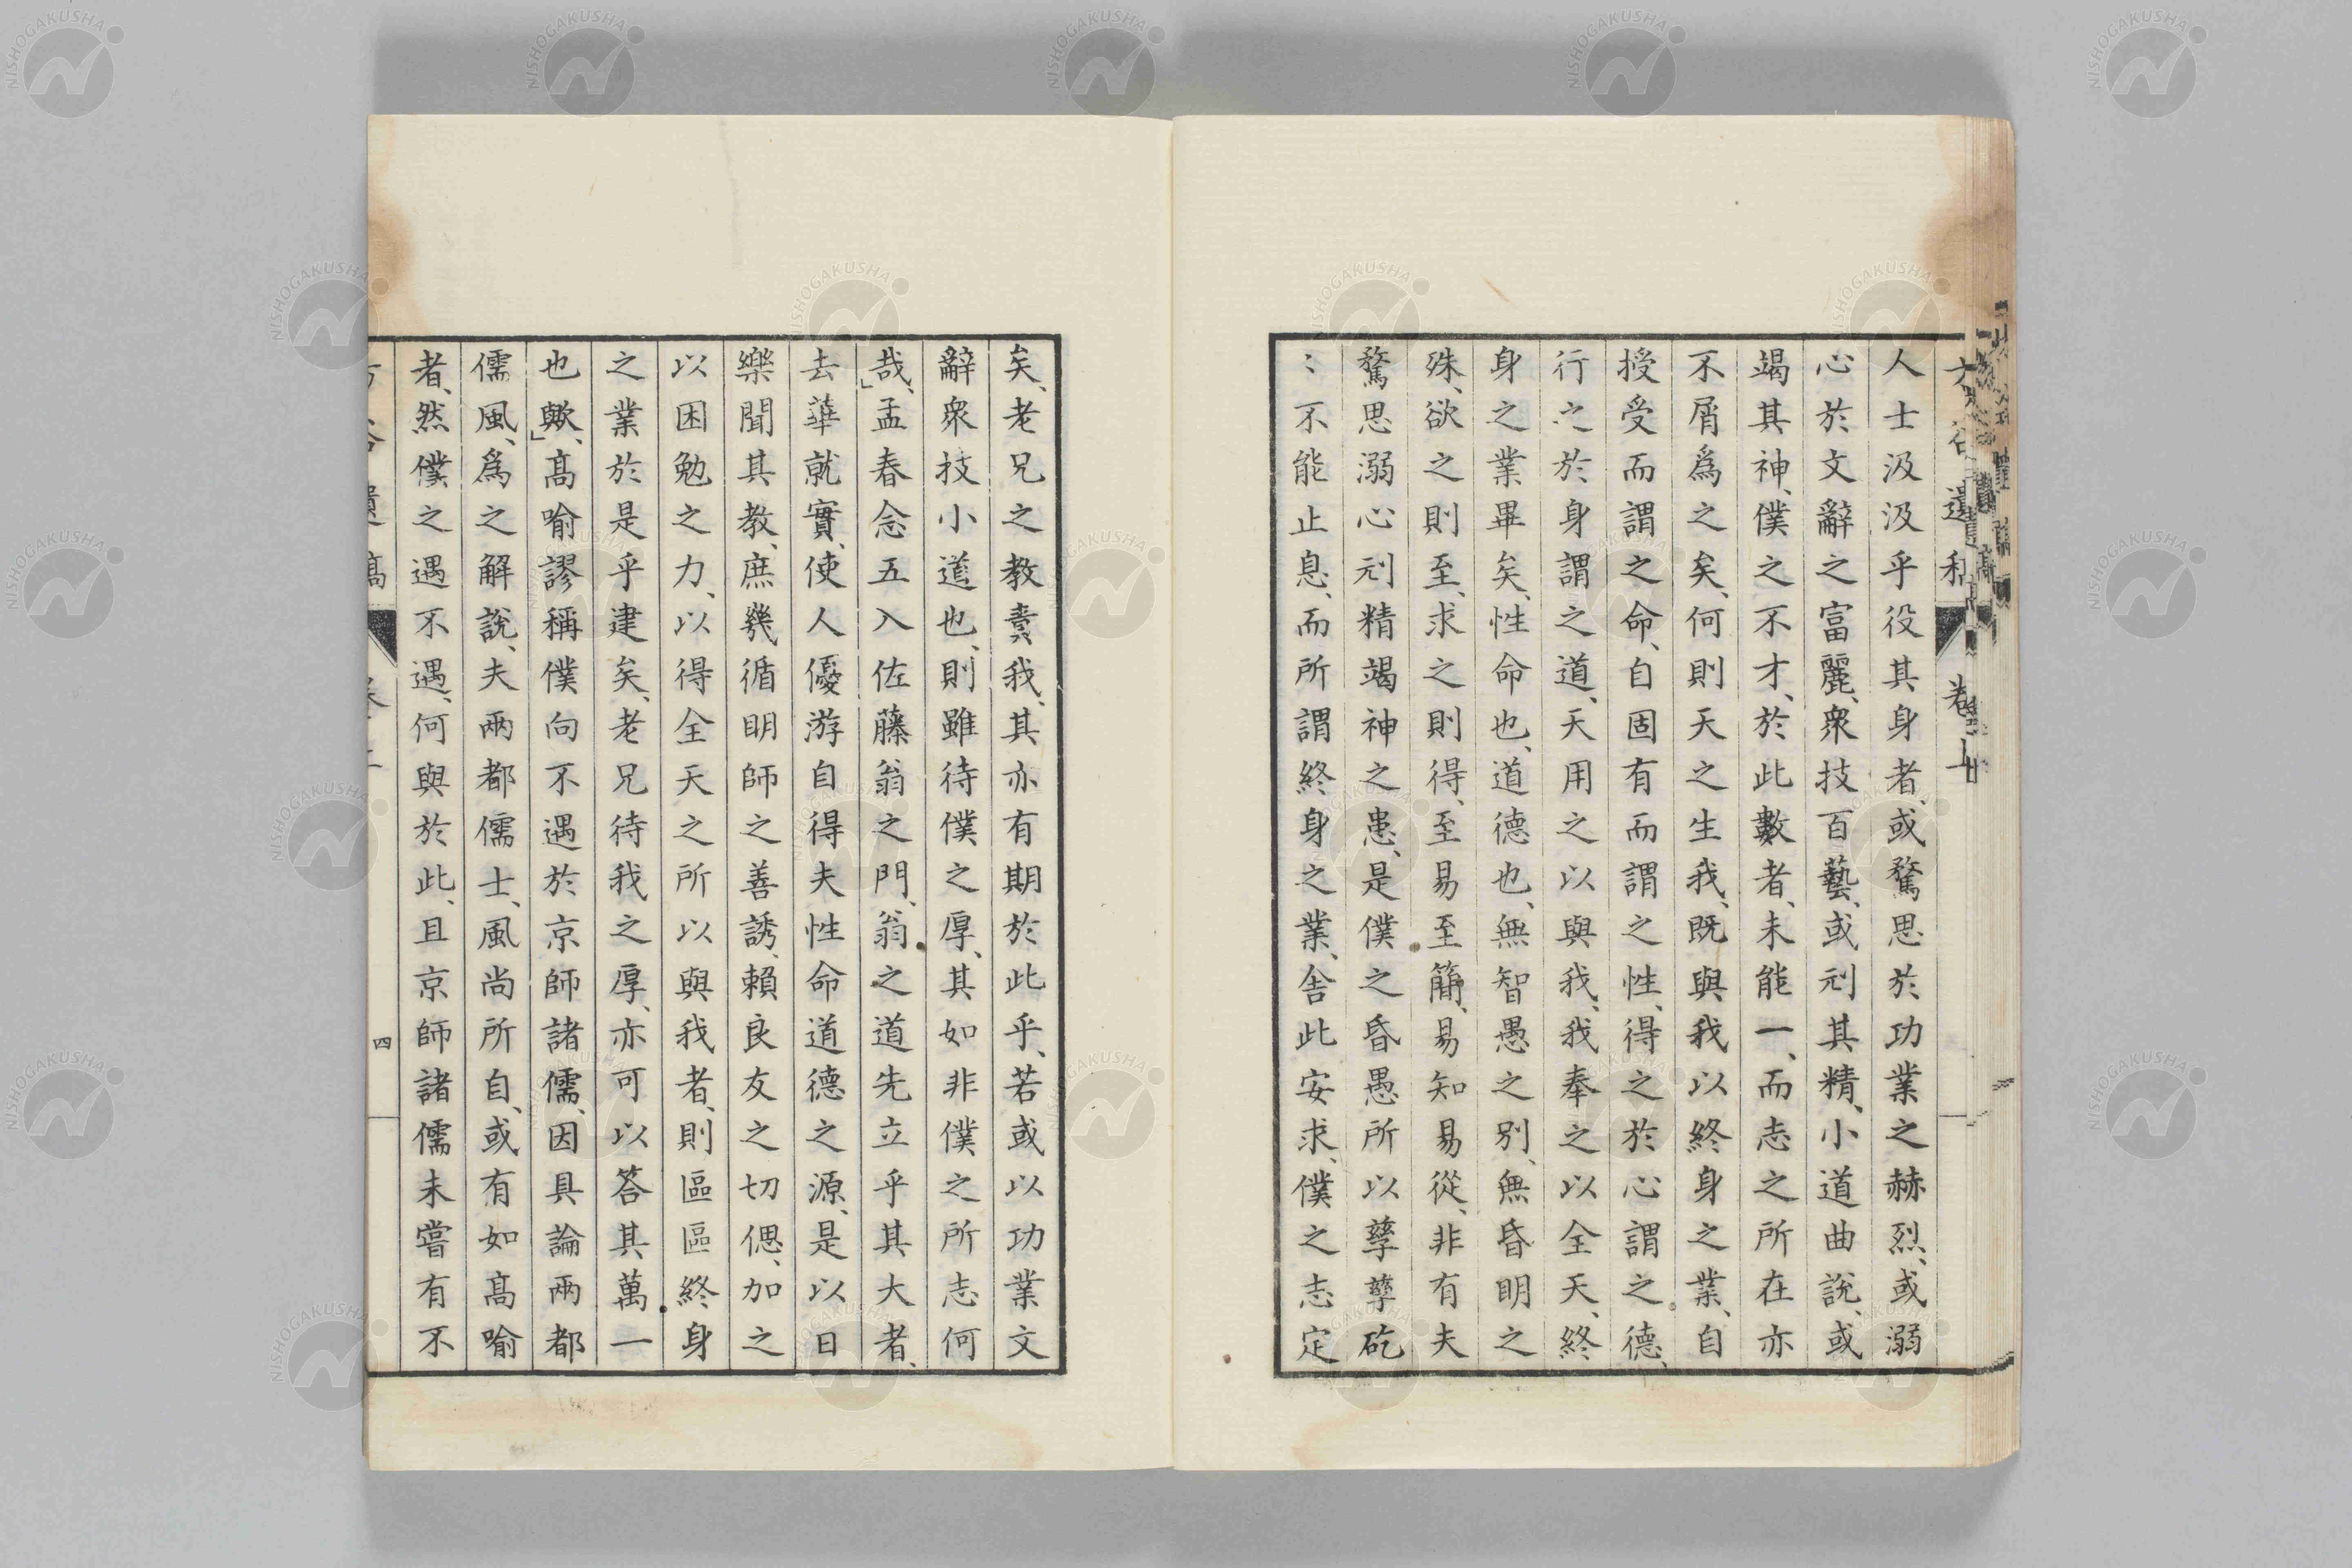 人士汲汲乎役其身者、或騖思於功業之赫烈、或溺
心於文辭之富麗、衆技百藝、或刓其精、小道曲說、或
竭其神、僕之不才、於此數者、未能一、而志之所在亦
不屑爲之矣、何則天之生我、既與我以終身之業、自
授受而謂之命、自固有而謂之性、得之於心謂之德、
行之於身謂之道、天用之以與我、我奉之以全天、終
身之業畢矣、性命也、道德也、無智愚之別、無昏明之
殊、欲之則至、求之則得、至易至簡、易知易從、非有夫
騖思溺心刓精竭神之患、是僕之昏愚所以孳孳矻
〻不能止息、而所謂終身之業、舍此安求、僕之志定
矣、老兄之教責我、其亦有期於此乎、若或以功業文
辭衆技小道也、則雖待僕之厚、其如非僕之所志何
哉、」孟春念五入佐藤翁之門、翁之道先立乎其大者、
去華就實、使人優游自得夫性命道德之源、是以日
樂聞其教、庶幾循明師之善誘、賴良友之切偲、加之
以困勉之力、以得全天之所以與我者、則區區終身
之業於是乎建矣、老兄待我之厚、亦可以答其萬一
也歟、」高喻謬稱僕向不遇於京師諸儒、因具論兩都
儒風、爲之解說、夫兩都儒士、風尚所自、或有如高喻
者、然僕之遇不遇、何與於此、且京師諸儒未嘗有不
四
NISHOGAKUSHA